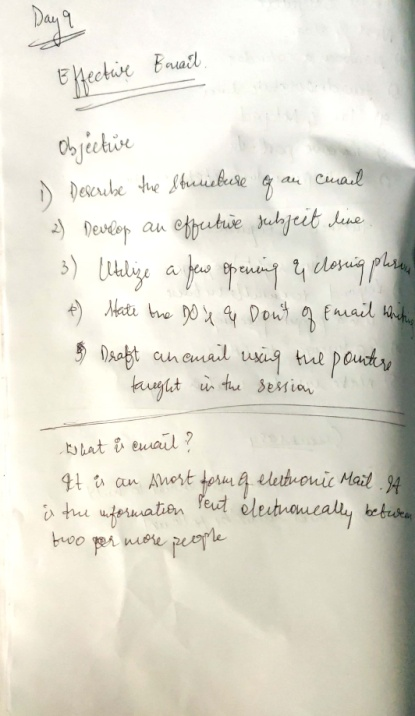 Day 9
Effective Email.
Objective
1) Describe the structure of an email
2) Develop an effective subject line
3) Utilize a few opening & closing phrase
4) State the DO's & Don't of Email Writing
5) Draft an email using the pointers
taught in the session
What is email?
It is an short form of electronic Mail. It
is the information sent electronically between
two or more people